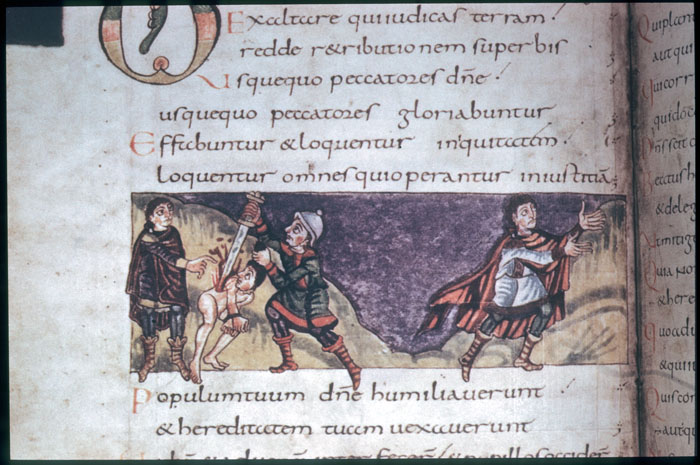 Exaltare qui iudicas terram.
redde retributionem superbis
Usquequo peccatores dne
usquequo peccatores gloriabuntur
Effabuntur & loquentur iniquitatem.
loquentur omnes qui operantur iniustitia
Populum tuum dne humiliaverunt
& hereditatem tuam vexaverunt
Quiplan
aut qui
Quicorri
quidoc
Dns scit c
& deleg
& here
Quoad
& qui iu
Quis con
aut qu